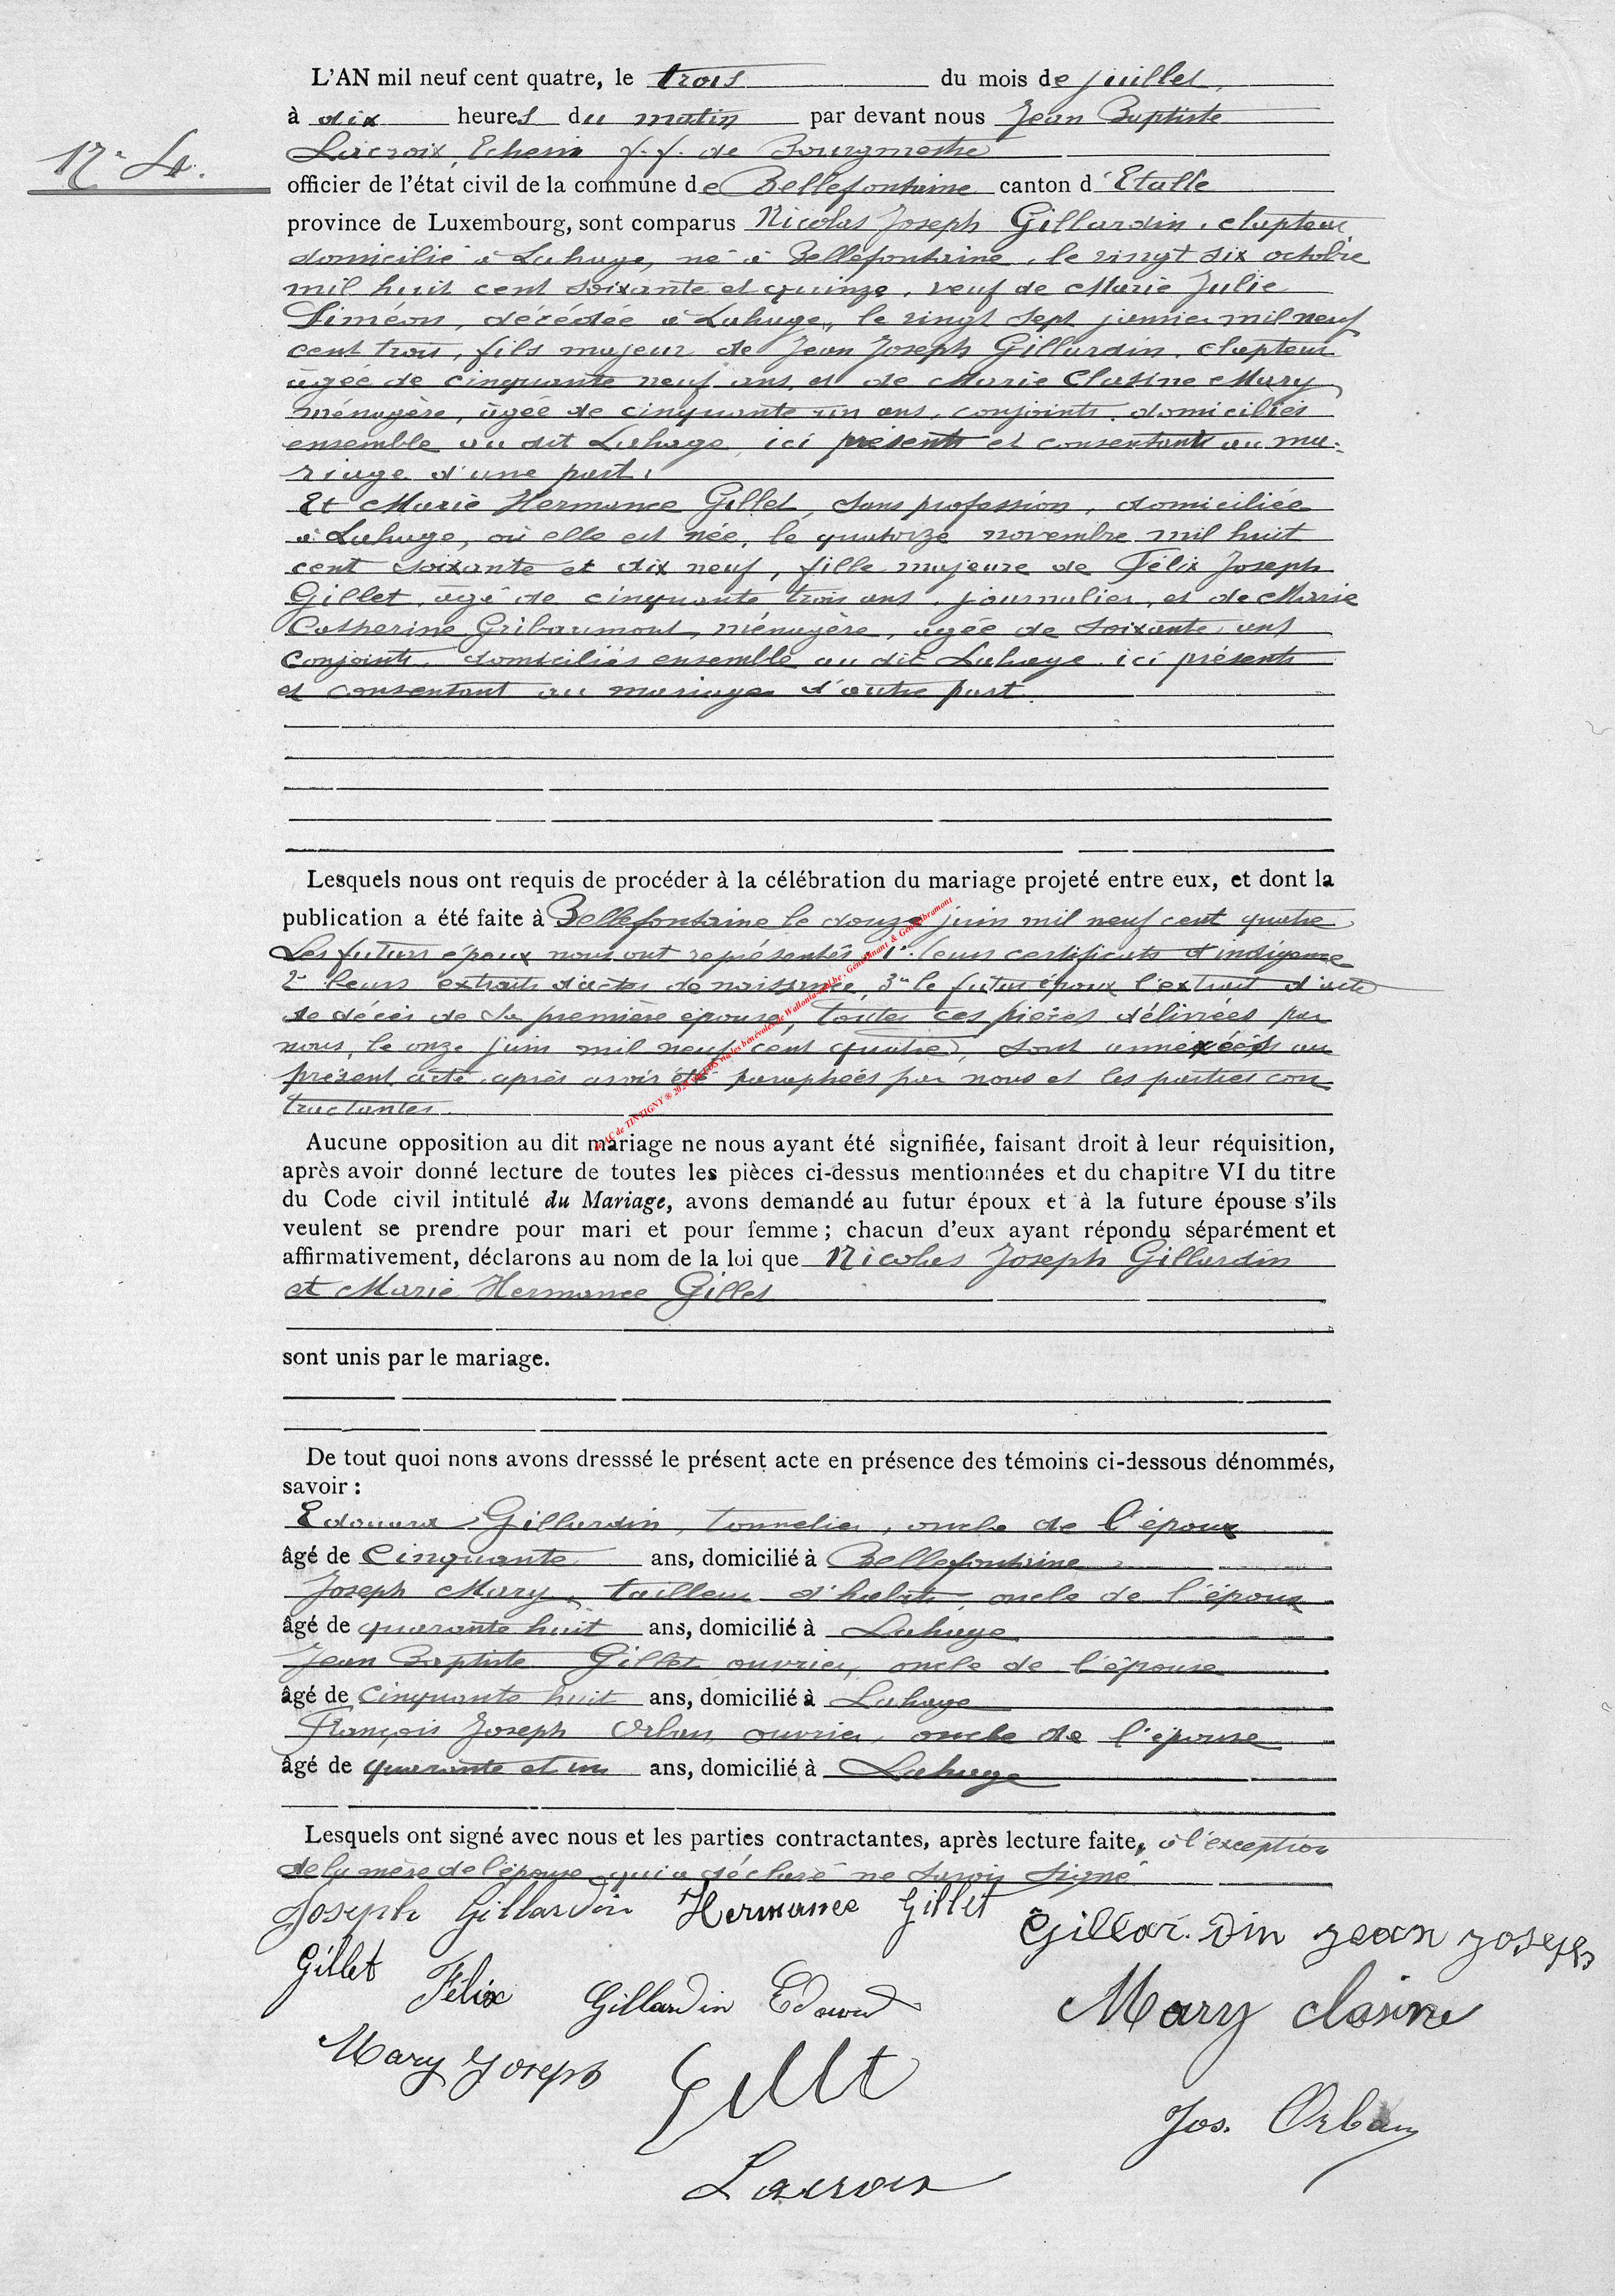 L'AN mil neuf cent quatre, le trois du mois de juillet,
à dix heures du matin par devant nous Jean Baptiste
Lacroix, Echevin f.f. de Bourgmestre
N° 4.
officier de l'état civil de la commune de Bellefontaine canton d'Etalle
province de Luxembourg, sont comparus Nicolas Joseph Gillardin,
domicilié à Lahage, né à Bellefontaine, le vingt six octobre
mil huit cent soixante et quinze, veuf de Marie Julie
Siméon, décédée à Lahage, le vingt sept janvier mil neuf
cent trois, fils majeur de Jean Joseph Gillardin,
âgée de cinquante neuf ans, et de Marie Clasine Mary
ménagère, âgée de cinquante un ans, conjoints, domiciliés
ensemble au dit Lahage, ici présents et consentants au ma-
riage d'une part.
Et Marie Hermance Gillet, sans profession, domiciliée
à Lahage, où elle est née, le quatorze novembre mil huit
cent soixante et dix neuf, fille majeure de Félix Joseph
Gillet, âgé de cinquante trois ans, journalier, et de Marie
Catherine Gribaumont, ménagère, âgée de soixante ans
conjoints, domiciliés ensemble au dit Lahage, ici présents
et consentant au mariage d'autre part.
Lesquels nous ont requis de procéder à la célébration du mariage projeté entre eux, et dont la
publication a été faite à Bellefontaine le douze juin mil neuf cent quatre
Les futurs époux nous ont représentés 1° leurs certificats d'indigence
2° leurs extraits d'actes de naissance, 3° le futur époux l'extrait d'acte
de décès de sa première épouse, toutes ces pièces délivrées par
nous, le onze juin mil neuf cent quatre, sont annexées au
présent acte après avoir été paraphées par nous et les parties con
tractantes.
Aucune opposition au dit mariage ne nous ayant été signifiée, faisant droit à leur réquisition,
après avoir donné lecture de toutes les pièces ci-dessus mentionnées et du chapitre VI du titre
du Code civil intitulé du Mariage, avons demandé au futur époux et à la future épouse s'ils
veulent se prendre pour mari et pour femme ; chacun d'eux ayant répondu séparément et
affirmativement, déclarons au nom de la loi que Nicolas Joseph Gillardin
et Marie Hermance Gillet
sont unis par le mariage.
De tout quoi nons avons dresssé le présent acte en présence des témoins ci-dessous dénommés,
savoir :
Edouard Gillardin, tonnelier, oncle de l'époux
âgé de Cinquante ans, domicilié à Bellefontaine
Joseph Mary, tailleur d'habits, oncle de l'époux
âgé de quarante huit ans, domicilié à Lahage
Jean Baptiste Gillet ouvrier, oncle de l'épouse
âgé de Cinquante huit ans, domicilié à Lahage
François Joseph Orban, ouvrier, oncle de l'épouse
âgé de quarante et un ans, domicilié à Lahage
Lesquels ont signé avec nous et les parties contractantes, après lecture faite, à l'exception
de la mère de l'épouse qui a déclaré ne savoir signé
Joseph Gillardin Hermance Gillet Gillardin Jean Joseph
Gillet Félix Gillardin Edouard Mary Clasine
Mary Joseph Gillet Jos. Orban
Lacroix